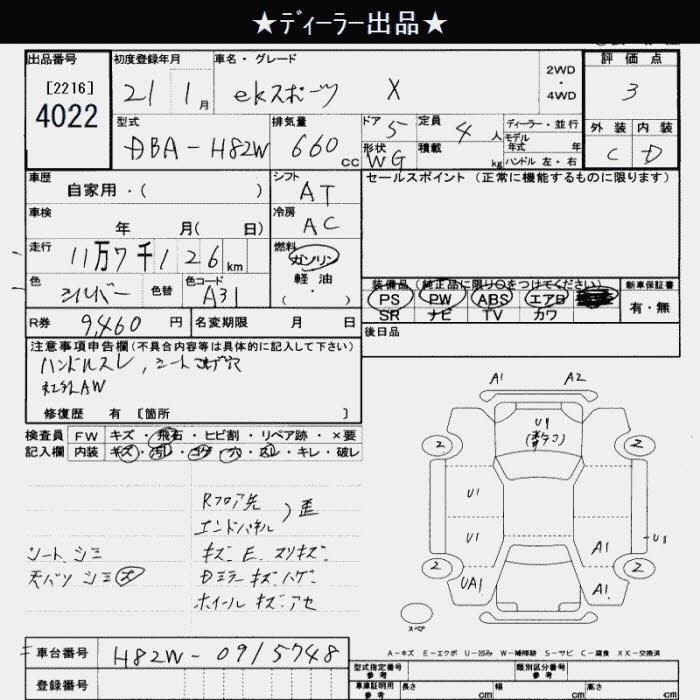 ★ディーラー出品★
出品番号 初度登録年月 車名・グレード 評価点
[2216] 21 1月 ekスポーツ X 2WD・4WD 3
4022
型式 排気量 ドア 5 定員 4人 ディーラー・並行 外装 内装
DBA-H82W 660cc 形状 WG 積載 kg モデル年式 年 C D
ハンドル 左・右
車歴 シフト セールスポイント (正常に機能するものに限ります)
自家用・( ) AT
車検 冷房
年 月( 日) AC
走行 11万7千126km 燃料 ガソリン
軽油
( )
色 シルバー 色替 色コード A31
装備品(純正品に限り○をつけてください) 新車保証書
PS PW ABS エアロ 有・無
SR ナビ TV カワ
R券 9,460円 名変期限 月 日 後日品
注意事項申告欄(不具合内容等は具体的に記入して下さい)
ハンドルスレ、シートコゲ穴
修復歴 有 [箇所 ]
検査員 FW キズ・飛石・ヒビ割・リペア跡・×要
記入欄 内装 キズ・汚レ・コゲ・穴・スレ・キレ・破レ
Rフロア先
エンドパネル ) 歪
シート、シミ キズ E スリキズ
天バリ シミ大 Dミラーキズハゲ
ホイール キズ、アセ
A1 A2
U1
2 2
U1
U1 A1
2 2
UA1 A1
スペア
A-キズ E-エクボ U-凹み W-補修跡 S-サビ C-腐食 XX-交換済
車台番号 H82W-0915748
登録番号
型式指定番号 参考 類別区分番号 参考
車庫証明用 参考 長さ cm 幅 cm 高さ cm